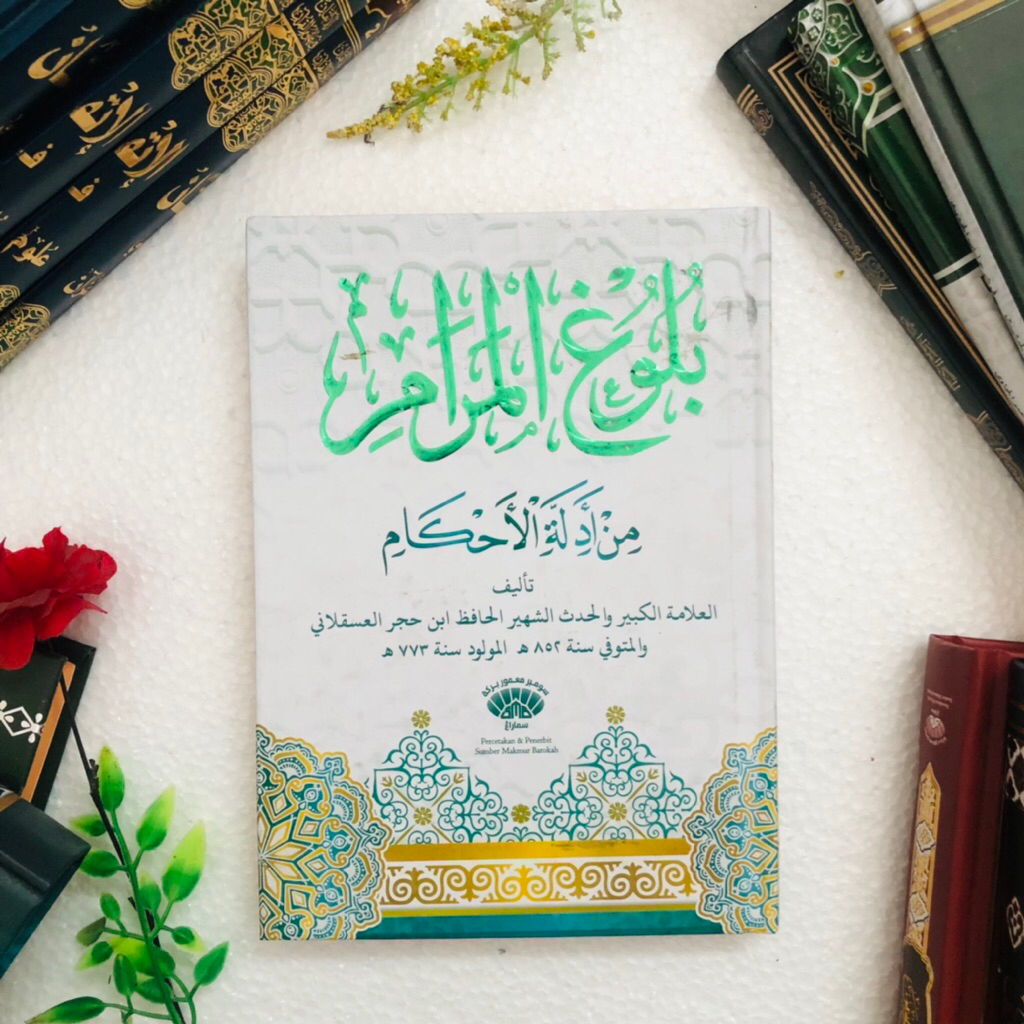 بُلُوغُ المَرَامِ
مِنْ أَدِلَّةِ الأَحْكَامِ
تأليف
العلامة الكبير والحدث الشهير الحافظ ابن حجر العسقلاني
والمتوفي سنة ٨٥٢ هـ المولود سنة ٧٧٣ هـ
سومبر معمور بركة
سماراغ
Percetakan & Penerbit
Sumber Makmur Barokah